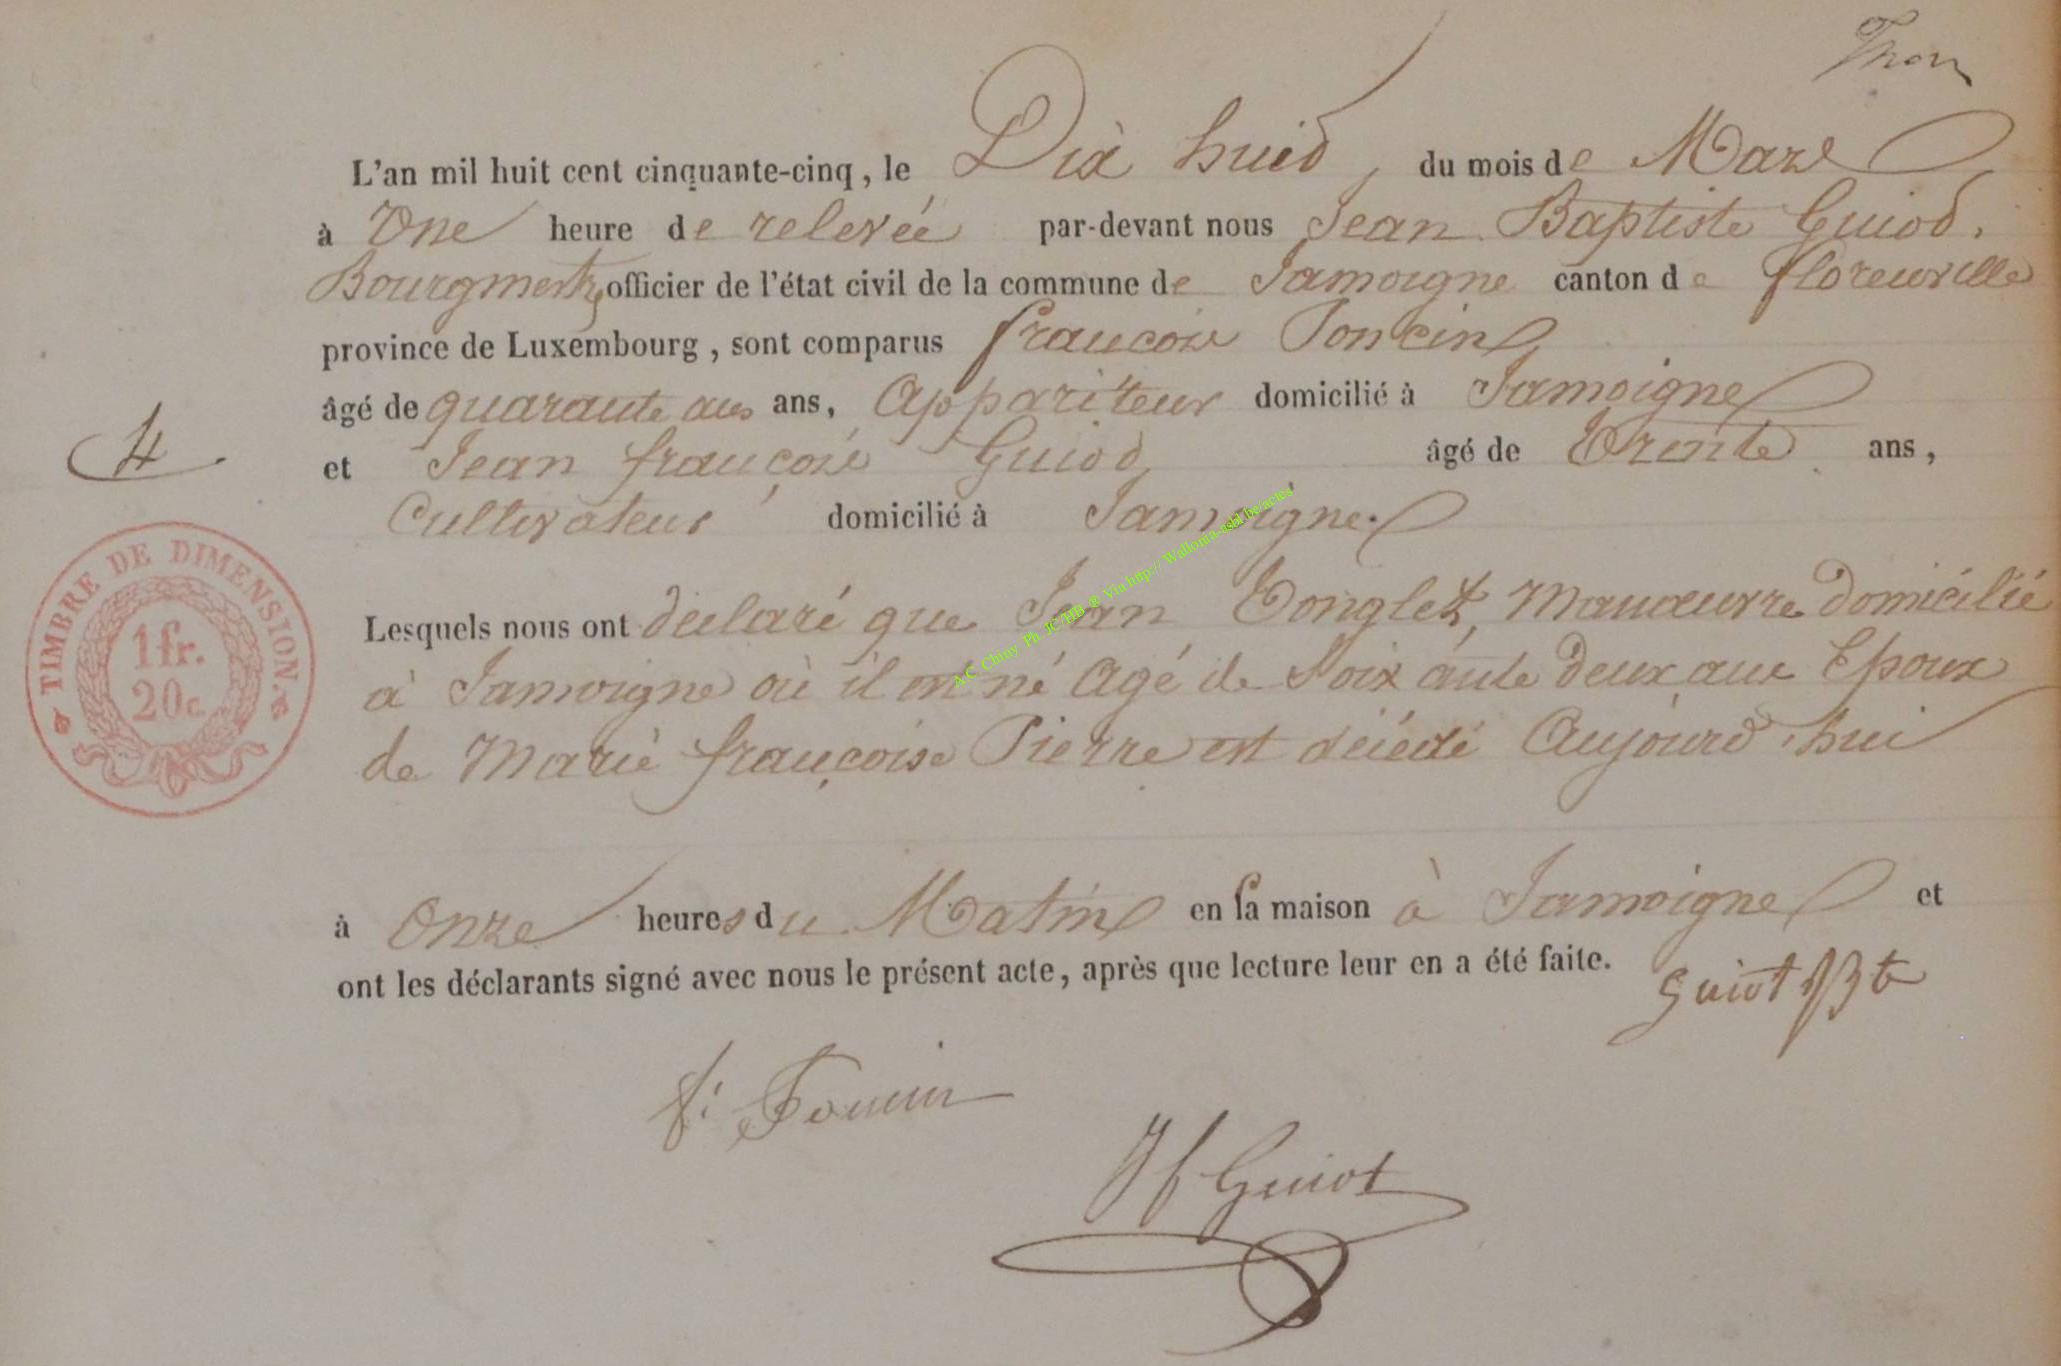 Thon
L'an mil huit cent cinquante-cinq, le Dix huid, du mois de Mars
à Une heure de relevée par-devant nous Jean Baptiste Guiod.
Bourgmestre, officier de l'état civil de la commune de Jamoigne canton de florenville
province de Luxembourg, sont comparus françois Poncin
âgé de quarante ans ans, Appariteur domicilié à Jamoigne
et Jean françois Guiod, âgé de Trente ans,
Cultivateur domicilié à Jamoigne.
4
TIMBRE DE DIMENSION.
1 fr.
20 c.
Lesquels nous ont déclaré que Jean Tonglet, Manœuvre domicilié
à Jamoigne où il est né Agé de Soixante deux ans Epoux
de Marie françoise Pierre est décédé Aujourd'hui
à Onze heures du Matin en sa maison à Jamoigne et
ont les déclarants signé avec nous le présent acte, après que lecture leur en a été faite.
Guiot JBte
f: Poncin
Jf Guiot
AC Chiny Ph. JC HB ® Via http:// Wallonia-asbl.be/actes